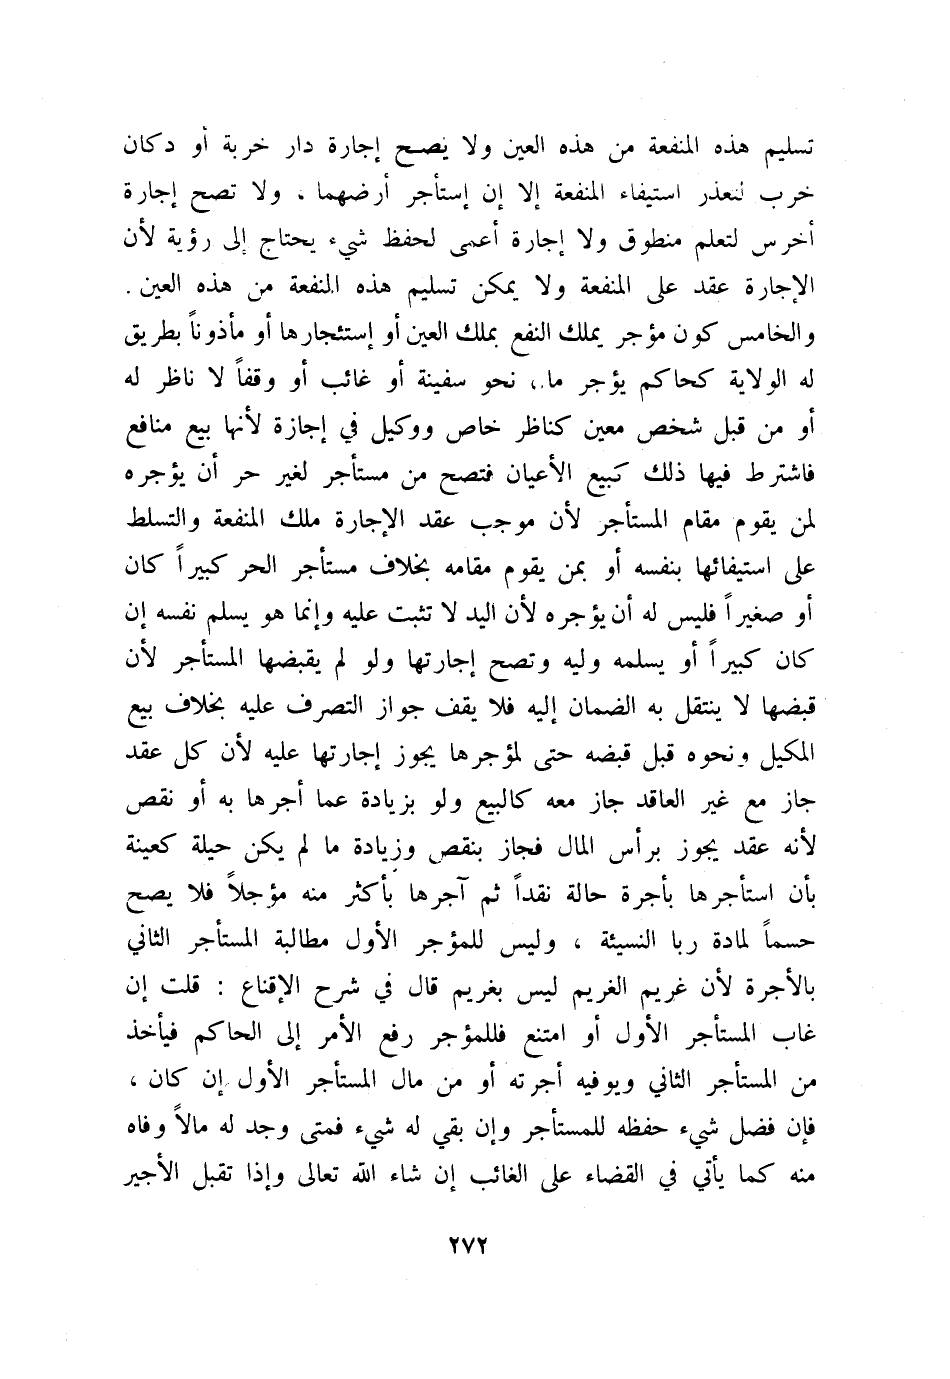 تسليم هذه المنفعة من هذه العين ولا يصح إجارة دار خربة أو دكان
خرب لتعذر استيفاء المنفعة إلا إن إستأجر أرضهما . ولا تصح إجارة
أخرس لتعلم منطوق ولا إجارة أعمى لحفظ شيء يحتاج إلى رؤية لأن
الإجارة عقد على المنفعة ولا يمكن تسليم هذه المنفعة من هذه العين .
والخامس كون مؤجر يملك النفع بملك العين أو إستئجارها أو مأذوناً بطريق
له الولاية كحاكم يؤجر ما، نحو سفينة أو غائب أو وقفاً لا ناظر له
أو من قبل شخص معين كناظر خاص ووكيل في إجازة لأنها بيع منافع
فاشترط فيها ذلك كبيع الأعيان فتصح من مستأجر لغير حر أن يؤجره
لمن يقوم مقام المستأجر لأن موجب عقد الإجارة ملك المنفعة والتسلط
على استيفائها بنفسه أو بمن يقوم مقامه بخلاف مستأجر الحر كبيراً كان
أو صغيراً فليس له أن يؤجره لأن اليد لا تثبت عليه وإنما هو يسلم نفسه إن
كان كبيراً أو يسلمه وليه وتصح إجارتها ولو لم يقبضها المستأجر لأن
قبضها لا ينتقل به الضمان إليه فلا يقف جواز التصرف عليه بخلاف بيع
المكيل ونحوه قبل قبضه حتى لمؤجرها يجوز إجارتها عليه لأن كل عقد
جاز مع غير العاقد جاز معه كالبيع ولو بزيادة عما أجرها به أو نقص
لأنه عقد يجوز برأس المال فجاز بنقص وزيادة ما لم يكن حيلة كعينة
بأن استأجرها بأجرة حالة نقداً ثم آجرها بأكثر منه مؤجلاً فلا يصح
حسماً لمادة ربا النسيئة ، وليس للمؤجر الأول مطالبة المستأجر الثاني
بالأجرة لأن غريم الغريم ليس بغريم قال في شرح الإقناع : قلت إن
غاب المستأجر الأول أو امتنع فللمؤجر رفع الأمر إلى الحاكم فيأخذ
من المستأجر الثاني ويوفيه أجرته أو من مال المستأجر الأول إن كان ،
فإن فضل شيء حفظه للمستأجر وإن بقي له شيء فمتى وجد له مالاً وفاه
منه كما يأتي في القضاء على الغائب إن شاء الله تعالى وإذا تقبل الأجير
٢٧٢